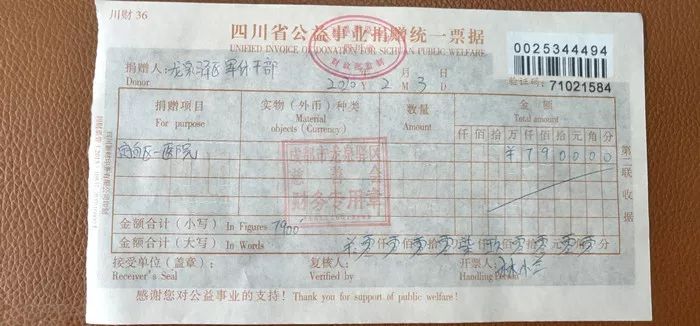 川财 36
四川省公益事业捐赠统一票据
UNIFIED INVOICE OF DONATION FOR SICHUAN PUBLIC WELFARE
0025344494
捐赠人：龙泉驿区军休干部
Donor
2020年 2 月 3 日
Y M D
验证码：71021584
捐赠项目
For purpose
实物（外币）种类
Material
objects (Currency)
数量
Amount
金额
Total amount
仟佰拾万仟佰拾元角分
定向区一医院
¥790000
成都市龙泉驿区
慈善会
财务专用章
金额合计（小写） In Figures 7900
金额合计（大写） In Words 零仟零佰零拾零万柒仟玖佰零拾零元零角零分
接受单位（盖章）：
Receiver's Seal
复核人：
Verified by
开票人：
Handling Person
感谢您对公益事业的支持！ Thank you for support of public welfare!
第二联 收据